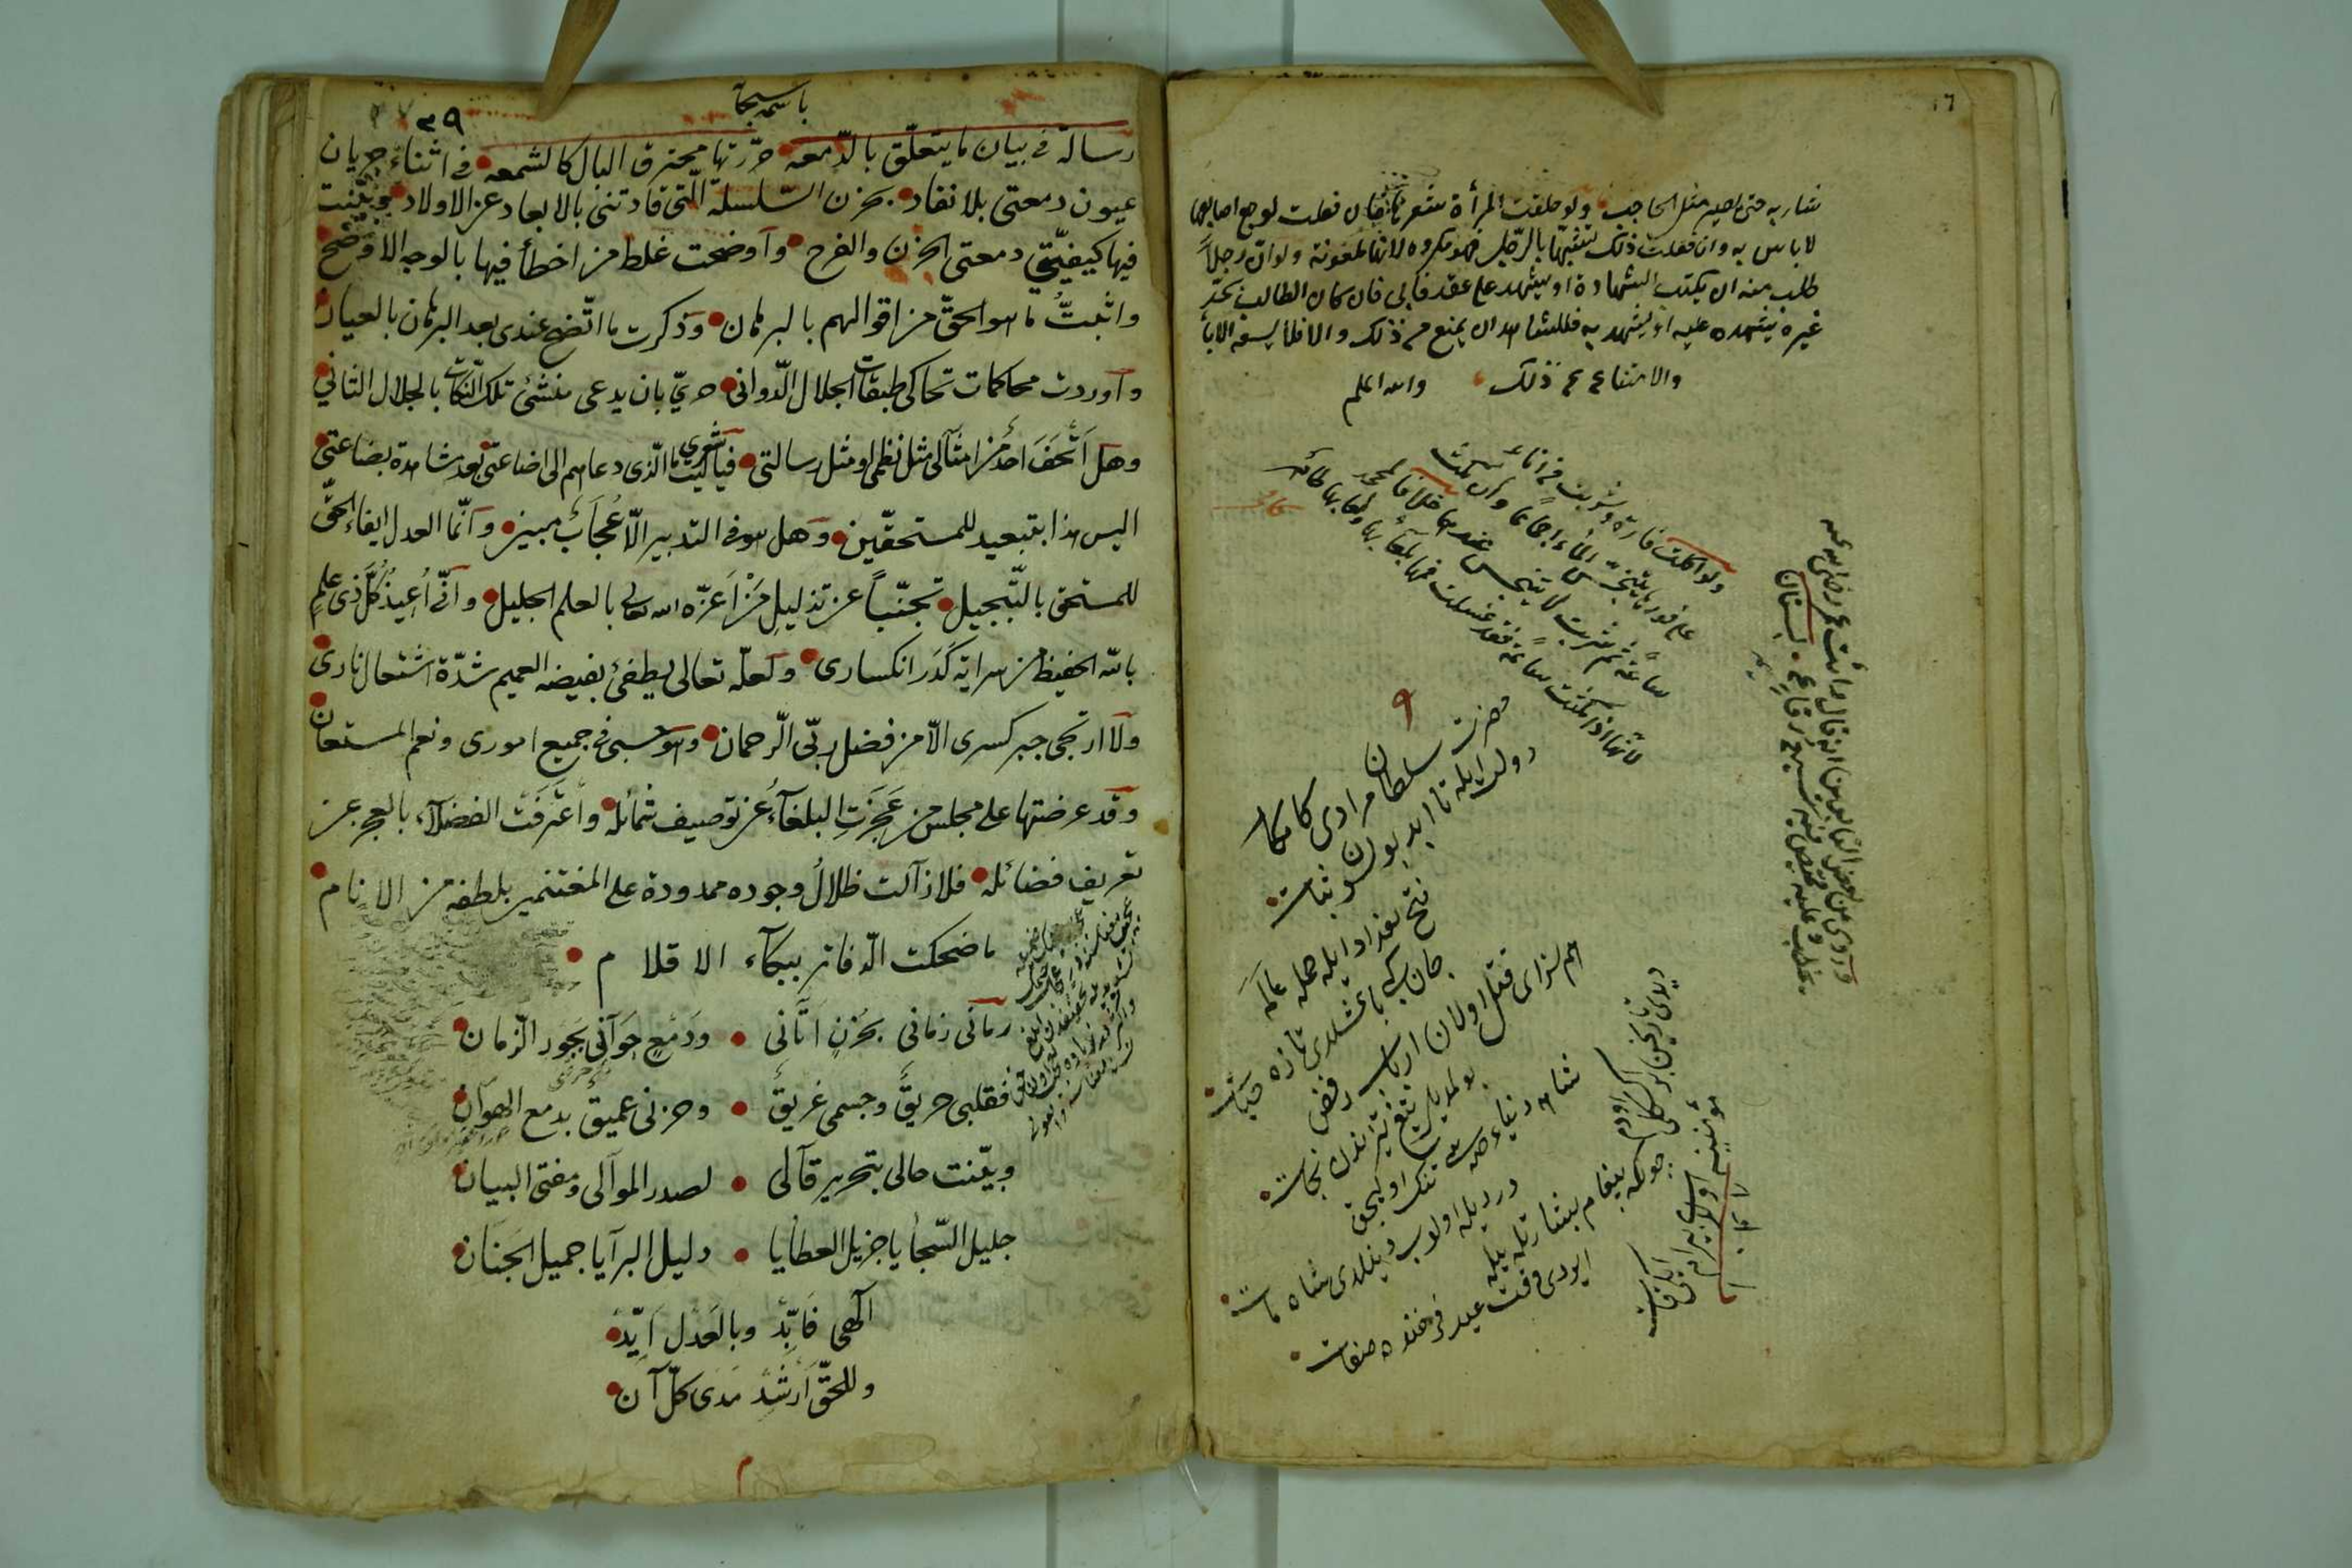 ١٦
شاربه حتى يصير مثل الحاجب ولو حلقت المرأة شعرها فان فعلت لوجع اصابها
لا باس به وان فعلت ذلك تشبّهًا بالرّجل فهو مكروه لانها ملعونة ولو انّ رجلاً
طلب منه ان يكتب الشهادة او يشهد على عقد فابى فان كان الطالب يجد
غيره يشهده عليه او يشهد به فللشاهد ان يمنع من ذلك والا فلا يسعه الاباء
والامتناع عن ذلك والله اعلم
ولو اكلت فارة وشربت من اناء
على فورها يتنجّس الماء اجماعا وان مكثت
ساعة ثم شربت لا يتنجس عندهما خلافا لمحمد
لانها اذا مكثت ساعة فقد غسلت فمها بلعابها
وروى عن بعض التابعين انه قال رأيت عمر رضى الله عنه
يخطب وعليه قميص فيه سبع رقاع
حضرت سلطان مرادى كامكار
دولت ايله تا ابد بولسون ثبات
فتح بغداد ايله جمله عالمه
جان كبى باغشلدى تازه حيات
هم سزاى قتل اولان ارباب رفض
بولمديلر تيغ تيزندن نجات
شاه دنياء
اولوب دينلدى شاه مات
پيغام بشارتله بيله
ايردى وقت عيد فرخنده صفات
باسمه سبحانه
٣٩
رسالة في بيان ما يتعلّق بالدّمعه حرّرتها محترق البال كالشمعه في اثناء جريان
عيون دمعتى بلا نفاد بحزن السّلسلة الّتى قادتنى بالابعاد عن الاولاد وبيّنت
فيها كيفيّتى دمعتى الحزن والفرح وأوضحت غلط من اخطأ فيها بالوجه الاوضح
واثبتُّ ما هو الحقّ من اقوالهم بالبرهان وذكرت ما اتّضح عندى بعد البرهان بالعيان
وأوردت محاكمات تحاكى طبقات الجلال الدّوانى حريّ بان يدعى منشئ تلك النّكات بالجلال الثاني
وهل أتحف احدٌ من امثالى مثل نظمى او مثل رسالتى فياليت شعرى ما الّذى دعاهم الى اضاعتى بعد مشاهدة بضاعتى
اليس هذا بتبعيد للمستحقّين وهل هو في التدبير الّا عُجاب مبين وانّما العدل ايفاء الحقّ
للمستحق بالتّبجيل تجنّباً عن تذليل مَنْ أعزّه الله تعالى بالعلم الجليل وانّى أُعيذُ كلّ ذى علمٍ
بالله الحفيظ من سراية كَدَر انكسارى ولعلّه تعالى يطفئ بفيضه العميم شدّة اشتعال نارى
ولا ارتجى جبر كسرى الّا من فضل ربّى الرّحمان وهو حسبى في جميع امورى ونعم المستعان
وقد عرضتها على مجلس من عَجَزَتِ البلغاءُ عن توصيف شمائله واعترفت الفضلاء بالعجز عن
تعريف فضائله فلا زالت ظلالُ وجوده ممدودة على المغتنمين بلطفه من الانام
ما ضحكت الدّفاتر ببكآء الاقلام
رمانى زمانى بحُزنٍ اتانى ودَمعٍ جَوانى بجور الزمان
فقلبى حريقٌ وجسمى غريقٌ وحزنى عميقٌ بدمع الهوان
وبيّنت حالى بتحرير قالى لصدر الموالى ومفتى البيان
جليل السّجايا جزيل العطايا دليل البرايا جميل الجَنَان
الٰهى فَابِّدْ وبالعَدْل اَيِّدْ
وللحقّ اَرشِدْ مَدَى كلّ آن
م